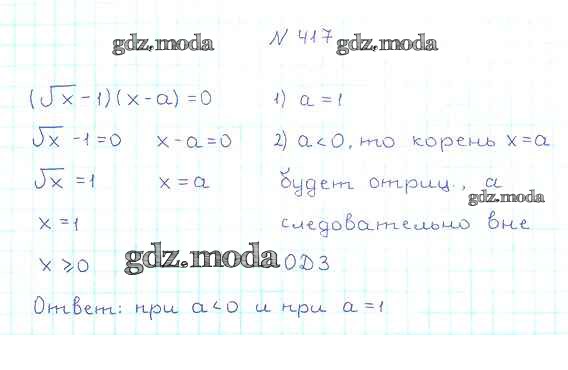 gdz.moda № 417 gdz.moda
(√x - 1)(x - a) = 0 1) a = 1
√x - 1 = 0 x - a = 0 2) a < 0, то корень x = a
√x = 1 x = a будет отриц., а
gdz.moda
x = 1 следовательно вне
x ⩾ 0 gdz.moda ОДЗ
Ответ: при a < 0 и при a = 1